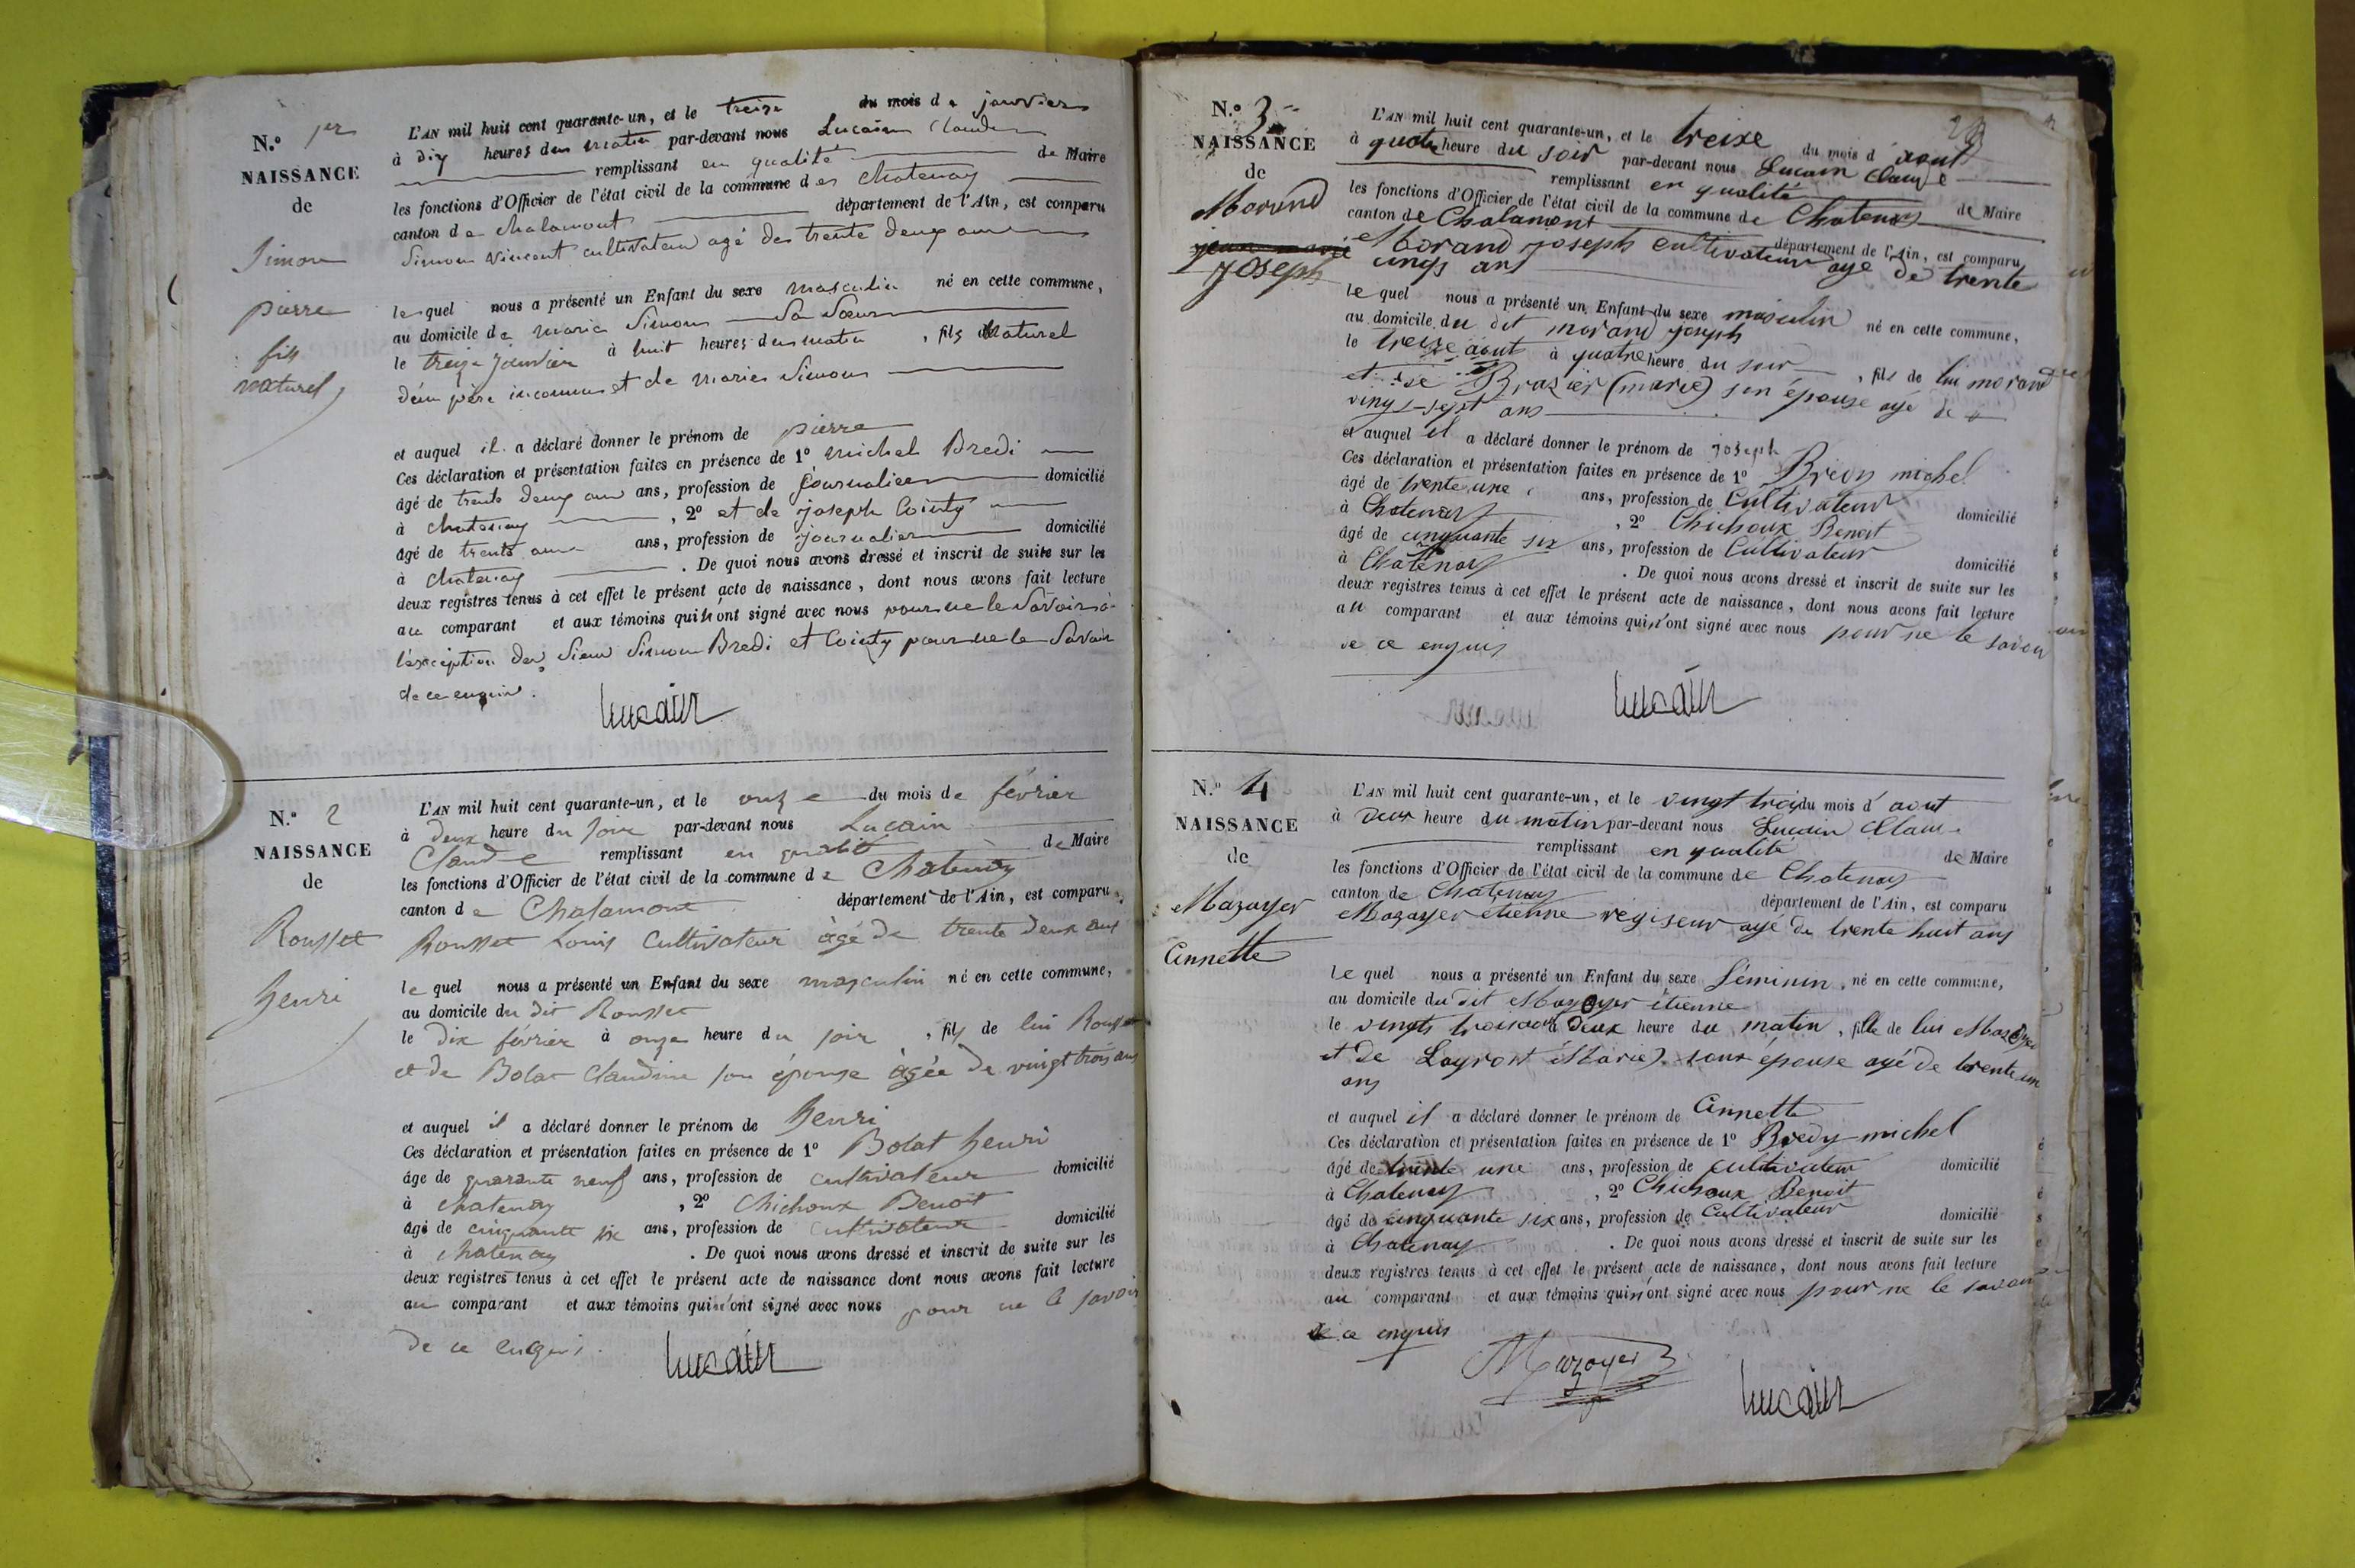 N.º 1er
NAISSANCE
de
Simon
pierre
fils
naturel
L'AN mil huit cent quarante-un, et le treize du mois de janvier
à dix heures du matin par-devant nous Lucain Claude
remplissant en qualité de Maire
les fonctions d'Officier de l'état civil de la commune de chatenay
canton de chalamont département de l'Ain, est comparu
Simon Vincent cultivateur agé de trente deux ans
lequel nous a présenté un Enfant du sexe masculin né en cette commune,
au domicile de marie Simon Sa Sœur
le treize janvier à huit heures du matin, fils Naturel
d'un père inconnu et de marie Simon
et auquel il a déclaré donner le prénom de pierre
Ces déclaration et présentation faites en présence de 1º michel Bredi
âgé de trente deux ans ans, profession de journalier domicilié
à chatenay, 2º et de joseph Cointy
âgé de trente ans ans, profession de journalier domicilié
à chatenay. De quoi nous avons dressé et inscrit de suite sur les
deux registres tenus à cet effet le présent acte de naissance, dont nous avons fait lecture
au comparant et aux témoins qui n'ont signé avec nous pour ne le Savoir à
l'exception des Sieur Simon Bredi et Cointy pour ne le Savoir
de ce enquis.
Lucain
N.º 2
NAISSANCE
de
Rousset
henri
L'AN mil huit cent quarante-un, et le onze du mois de février
à deux heure du soir par-devant nous Lucain
Claude remplissant en qualité de Maire
les fonctions d'Officier de l'état civil de la commune de Chatenay
canton de Chalamont département de l'Ain, est comparu
Rousset Louis Cultivateur âgé de trente deux ans
le quel nous a présenté un Enfant du sexe masculin né en cette commune,
au domicile du dit Rousset
le dix février à onze heure du soir, fils de lui Rousset
et de Bolat Claudine son épouse âgée de vingt trois ans
et auquel il a déclaré donner le prénom de henri
Ces déclaration et présentation faites en présence de 1º Bolat henri
âge de quarante neuf ans, profession de cultivateur domicilié
à chatenay, 2º Chichoux Benoit
âgé de cinquante six ans, profession de cultivateur domicilié
à chatenay. De quoi nous avons dressé et inscrit de suite sur les
deux registres tenus à cet effet le présent acte de naissance dont nous avons fait lecture
au comparant et aux témoins qui n'ont signé avec nous pour ne le savoir
de ce enquis.
Lucain
N.º 3
NAISSANCE
de
Morand
Joseph
L'AN mil huit cent quarante-un, et le treize du mois d'aout
à quatre heure du soir par-devant nous Lucain Claude
remplissant en qualité de Maire
les fonctions d'Officier de l'état civil de la commune de Chatenay
canton de Chalamont département de l'Ain, est comparu
Morand joseph cultivateur agé de trente
cinqs ans
le quel nous a présenté un Enfant du sexe masculin né en cette commune,
au domicile du dit morand joseph
le treize aout à quatre heure du soir, fils de lui morand
et de Brazier (marie) son épouse agé de
vingt-sept ans
et auquel il a déclaré donner le prénom de joseph
Ces déclaration et présentation faites en présence de 1º Bredy michel
âgé de trente une ans, profession de Cultivateur domicilié
à Chatenay, 2º Chichoux Benoit
âgé de cinquante six ans, profession de Cultivateur domicilié
à Chatenay. De quoi nous avons dressé et inscrit de suite sur les
deux registres tenus à cet effet le présent acte de naissance, dont nous avons fait lecture
au comparant et aux témoins qui n'ont signé avec nous pour ne le savoir
de ce enquis
Lucain
N.º 4
NAISSANCE
de
Mazoyer
Annette
L'AN mil huit cent quarante-un, et le vingt trois du mois d'aout
à Deux heure du matin par-devant nous Lucain Clau
remplissant en qualité de Maire
les fonctions d'Officier de l'état civil de la commune de Chatenay
canton de Chatenay département de l'Ain, est comparu
Mazoyer etienne régiseur agé de trente huit ans
le quel nous a présenté un Enfant du sexe féminin, né en cette commune,
au domicile du dit Mazoyer étienne
le vingts trois aout à deux heure du matin, fille de lui Mazoyer
et de Layront (Marie) sont épouse agé de trente un
ans
et auquel il a déclaré donner le prénom de Annette
Ces déclaration et présentation faites en présence de 1º Bredy michel
âgé de trente une ans, profession de cultivateur domicilié
à Chatenay, 2º Chichoux Benoit
âgé de cinquante six ans, profession de Cultivateur domicilié
à Chatenay. De quoi nous avons dressé et inscrit de suite sur les
deux registres tenus à cet effet le présent acte de naissance, dont nous avons fait lecture
au comparant et aux témoins qui n'ont signé avec nous pour ne le savoir
de ce enquis
Mazoyer
Lucain